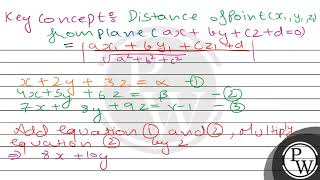 Key concept: Distance of Point (x₁, y₁, z₁)
from plane (ax + by + cz + d = 0)
= |ax₁ + by₁ + cz₁ + d|
√a² + b² + c²
x + 2y + 3z = α - ①
4x + 5y + 6z = β - ②
7x + 8y + 9z = γ - 1 - ③
Add equation ① and ②, Multiply
equation ② by 2
⇒ 8x + 10y
PW